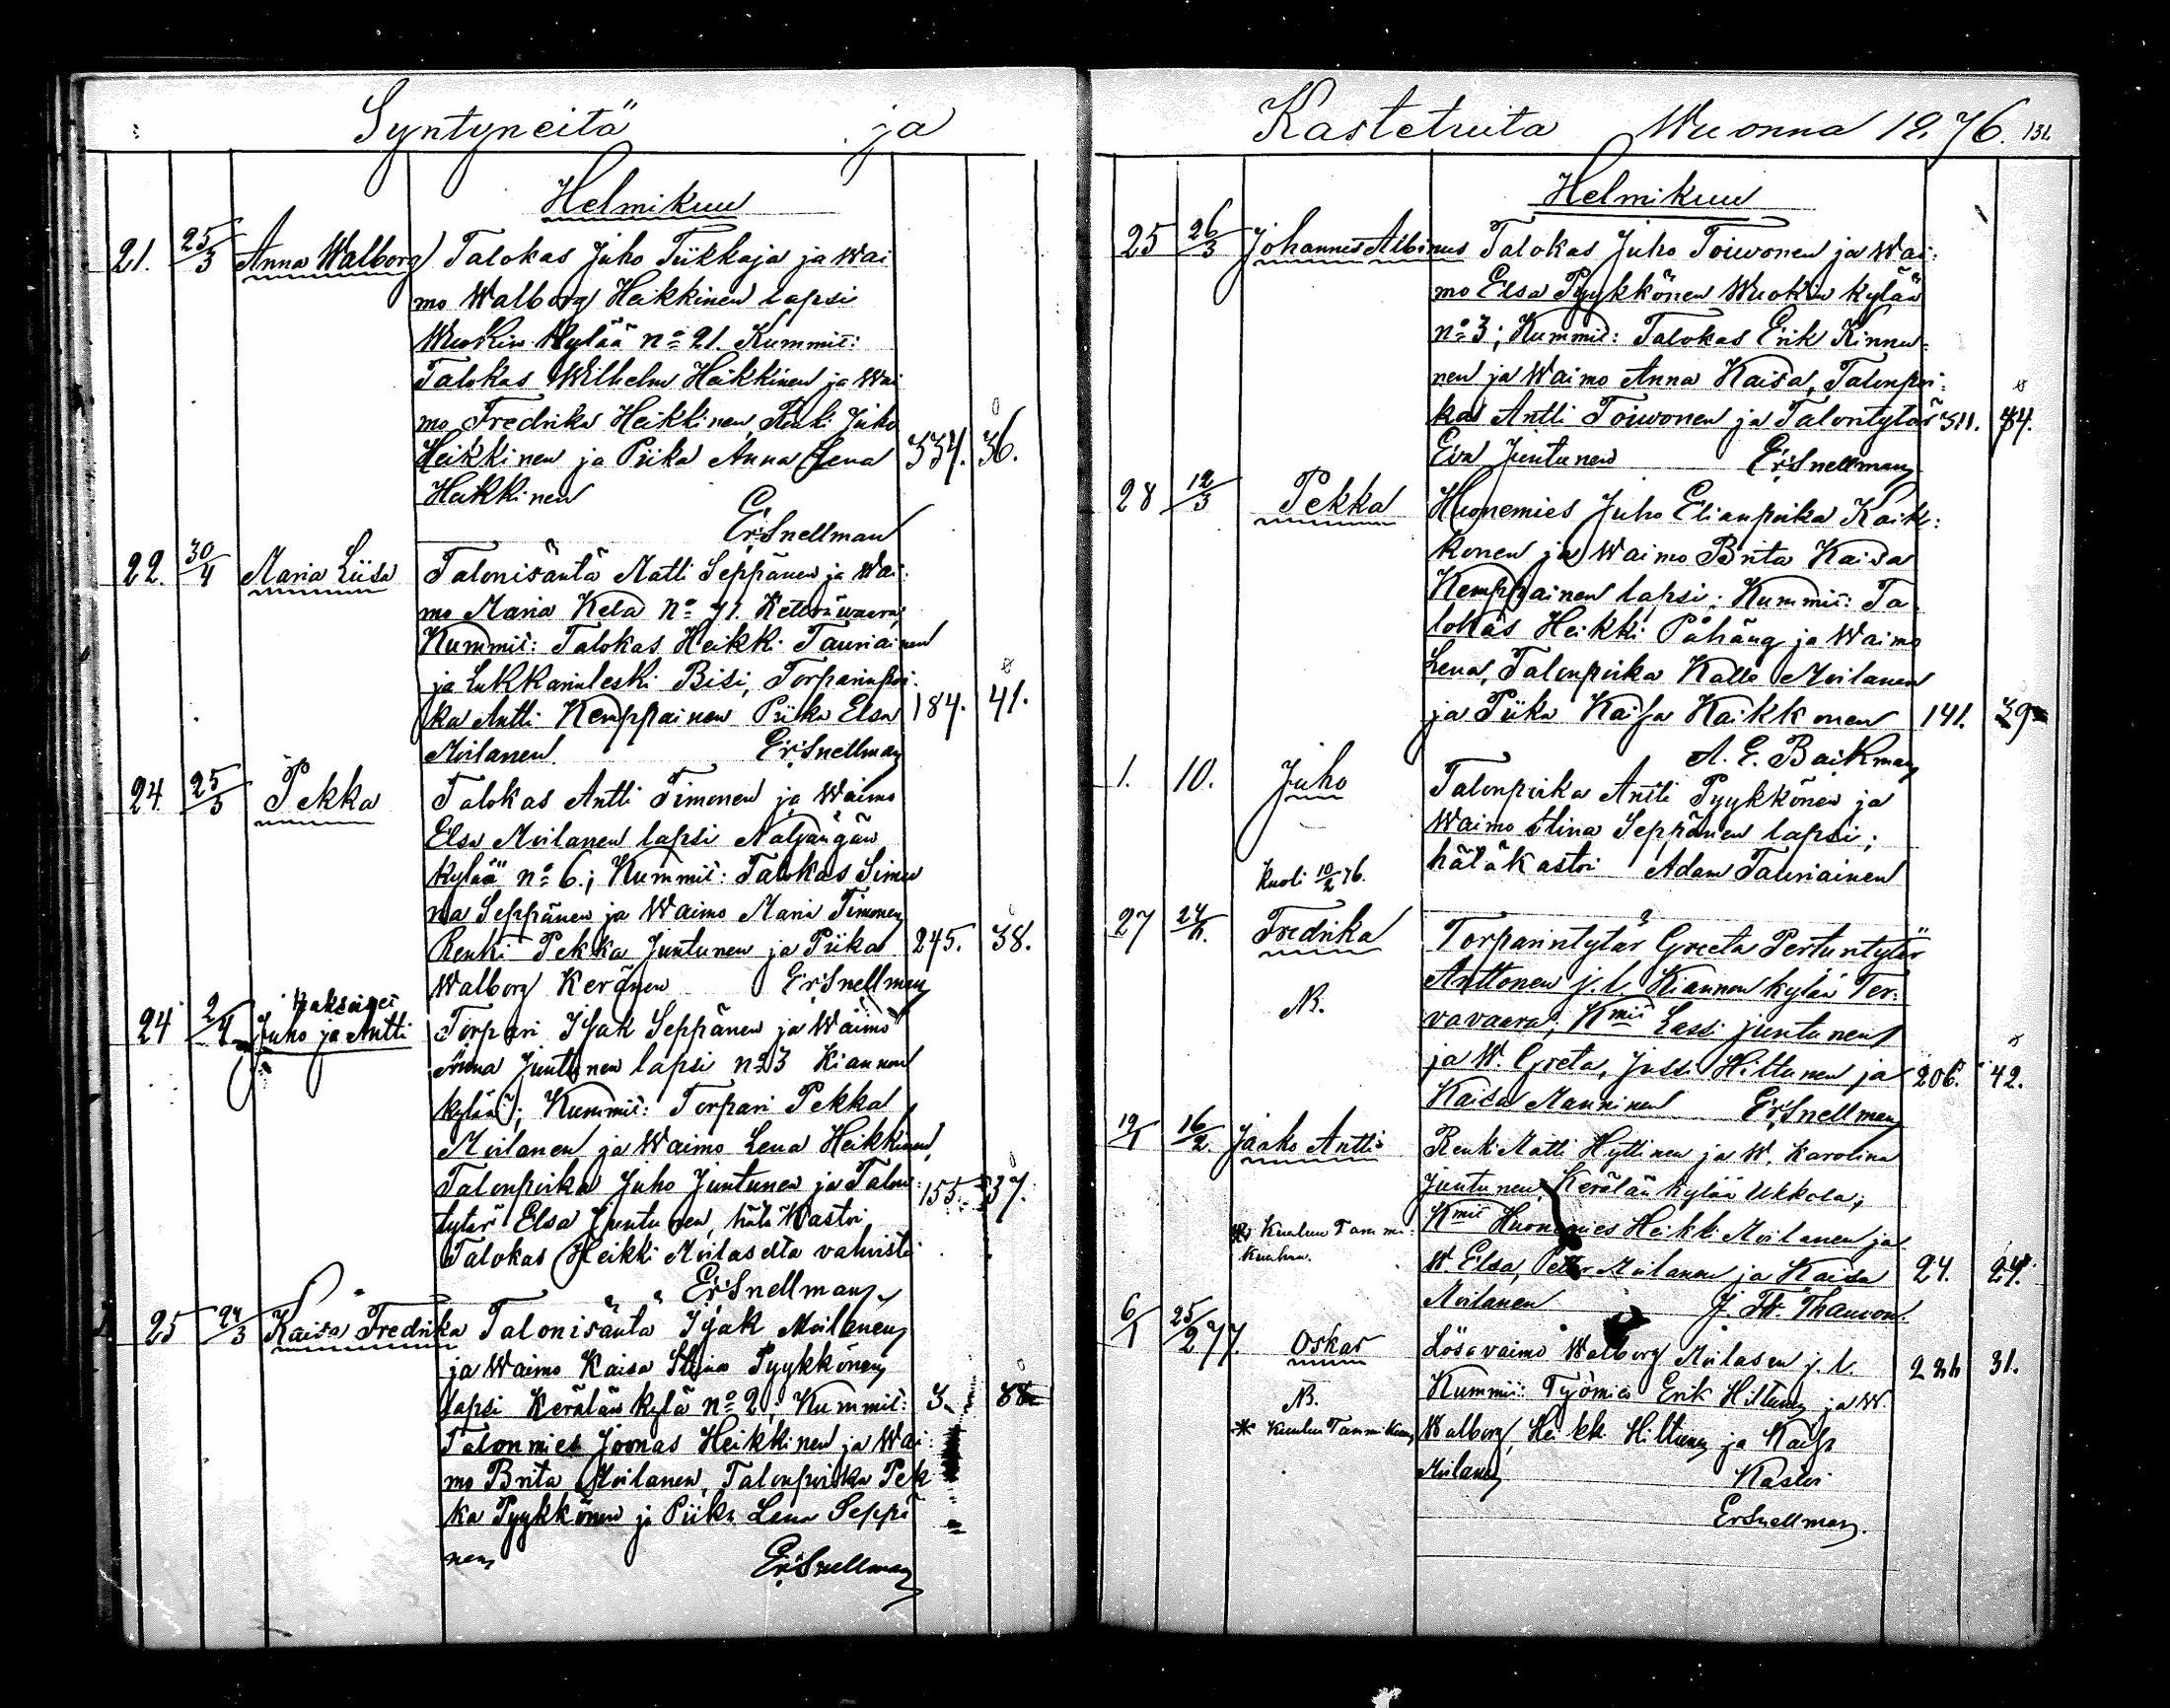 Syntyneitä ja
Helmikuu
21. 25/3 Anna Walborg Talokas Juho Tiikkaja ja Wai
mo Walborg Heikkinen lapsi
Wuokin kylää No 21. Kummit:
Talokas Wilhelm Heikkinen ja Wai
mo Fredrika Heikkinen, Renki Juho
Heikkinen ja Piika Anna Lena 334. 36.
Heikkinen
Er. Snellman
22. 30/4 Maria Liisa Talonisäntä Matti Seppänen ja Wai:
mo Maria Kela No 71.
Kummit: Talokas Heikki Tauriainen
ja Lukkarinleski Bisi, Torparinpoi.
ka Antti Kemppainen Piika Elsa 184. 41.
Moilanen. Er. Snellman
24. 25/3 Pekka Talokas Antti Timonen ja Waimo
Elsa Moilanen lapsi Näljängän
kylää No 6.; Kummit: Talokas Simu
na Seppänen ja Waimo Maria Timonen
Renki Pekka Juntunen ja Piika 245. 38.
Walborg Keränen Er. Snellman
Kaksoiset
24 2/4 Juho ja Antti Torpari Isak Seppänen ja Waimo
Juntunen lapsi No 3 Kiannon
kylää; Kummit: Torpari Pekka
Moilanen ja Waimo Lena Heikkinen,
Talonpoika Juho Juntunen ja Talon:
tytär Elsa Juntunen, hätäkastoi 155. 37.
Talokas Heikki Moilaselta vahvisti
Er. Snellman
25 24/3 Kaisa Fredrika Talonisäntä Isak Moilanen
ja Waimo Kaisa Stina Pyykkönen
lapsi Kerälän kylä No 2; Kummit: 3. 38
Talonmies Joonas Heikkinen ja Wai:
mo Brita Moilanen, Talonpoika Pek
ka Pyykkönen ja Piika Lena Seppä
nen
Er. Snellman
Kastetuita Wuonna 1876. 131.
Helmikuu
25 26/3 Johannes Albinus Talokas Juho Toiwonen ja Wai:
mo Elsa Pyykkönen Wuokin kylää
No 3; Kummit: Talokas Erik Kinnu:
nen ja Waimo Anna Kaisa, Talonpoi:
ka Antti Toiwonen ja Talontytär 311. 34.
Eva Juntunen Er. Snellman
28 12/3 Pekka Huonemies Juho Elianpoika Kaik:
konen ja Waimo Brita Kaisa
Kemppainen lapsi; Kummit: Ta
lokas Heikki Påhäng ja Waimo
Lena, Talonpoika Kalle Moilanen
ja Piika Kaisa Kaikkonen 141. 39
A. E. Backman
1. 10. Juho Talonpoika Antti Pyykkönen ja
Waimo Stina Seppänen lapsi;
hätäkastoi Adam Tauriainen
Kuoli 10/2 76.
27 Fredrika Torparintytär Greeta Pertuntytär
Anttonen j. l. Kiannon kylää Ter:
NB. vavaara; Kmit Lassi Juntunen
ja W. Greta, Jussi Hiltunen ja 206. 42.
Kaisa Manninen Er. Snellman
19/1 16/2 Jaako Antti Renki Matti Hyttinen ja W. Karolina
Juntunen, Kerälän kylää Ukkola;
Kmit Huonemies Heikki Moilanen ja
* Kuuluu Tammi:
kuuhun.
W. Elsa, Petter Moilanen ja Kaisa 24. 24.
Moilanen
6/1 25/2 77. Oskar Lösävaimo Walborg Moilasen j. l. 31.
Kummit: Työmies Erik Hiltunen ja W.
NB.
* Kuuluu Tammikuun Walborg, Heikk Hiltunen ja Kaisa
Moilanen Kastoi
Er Snellman.